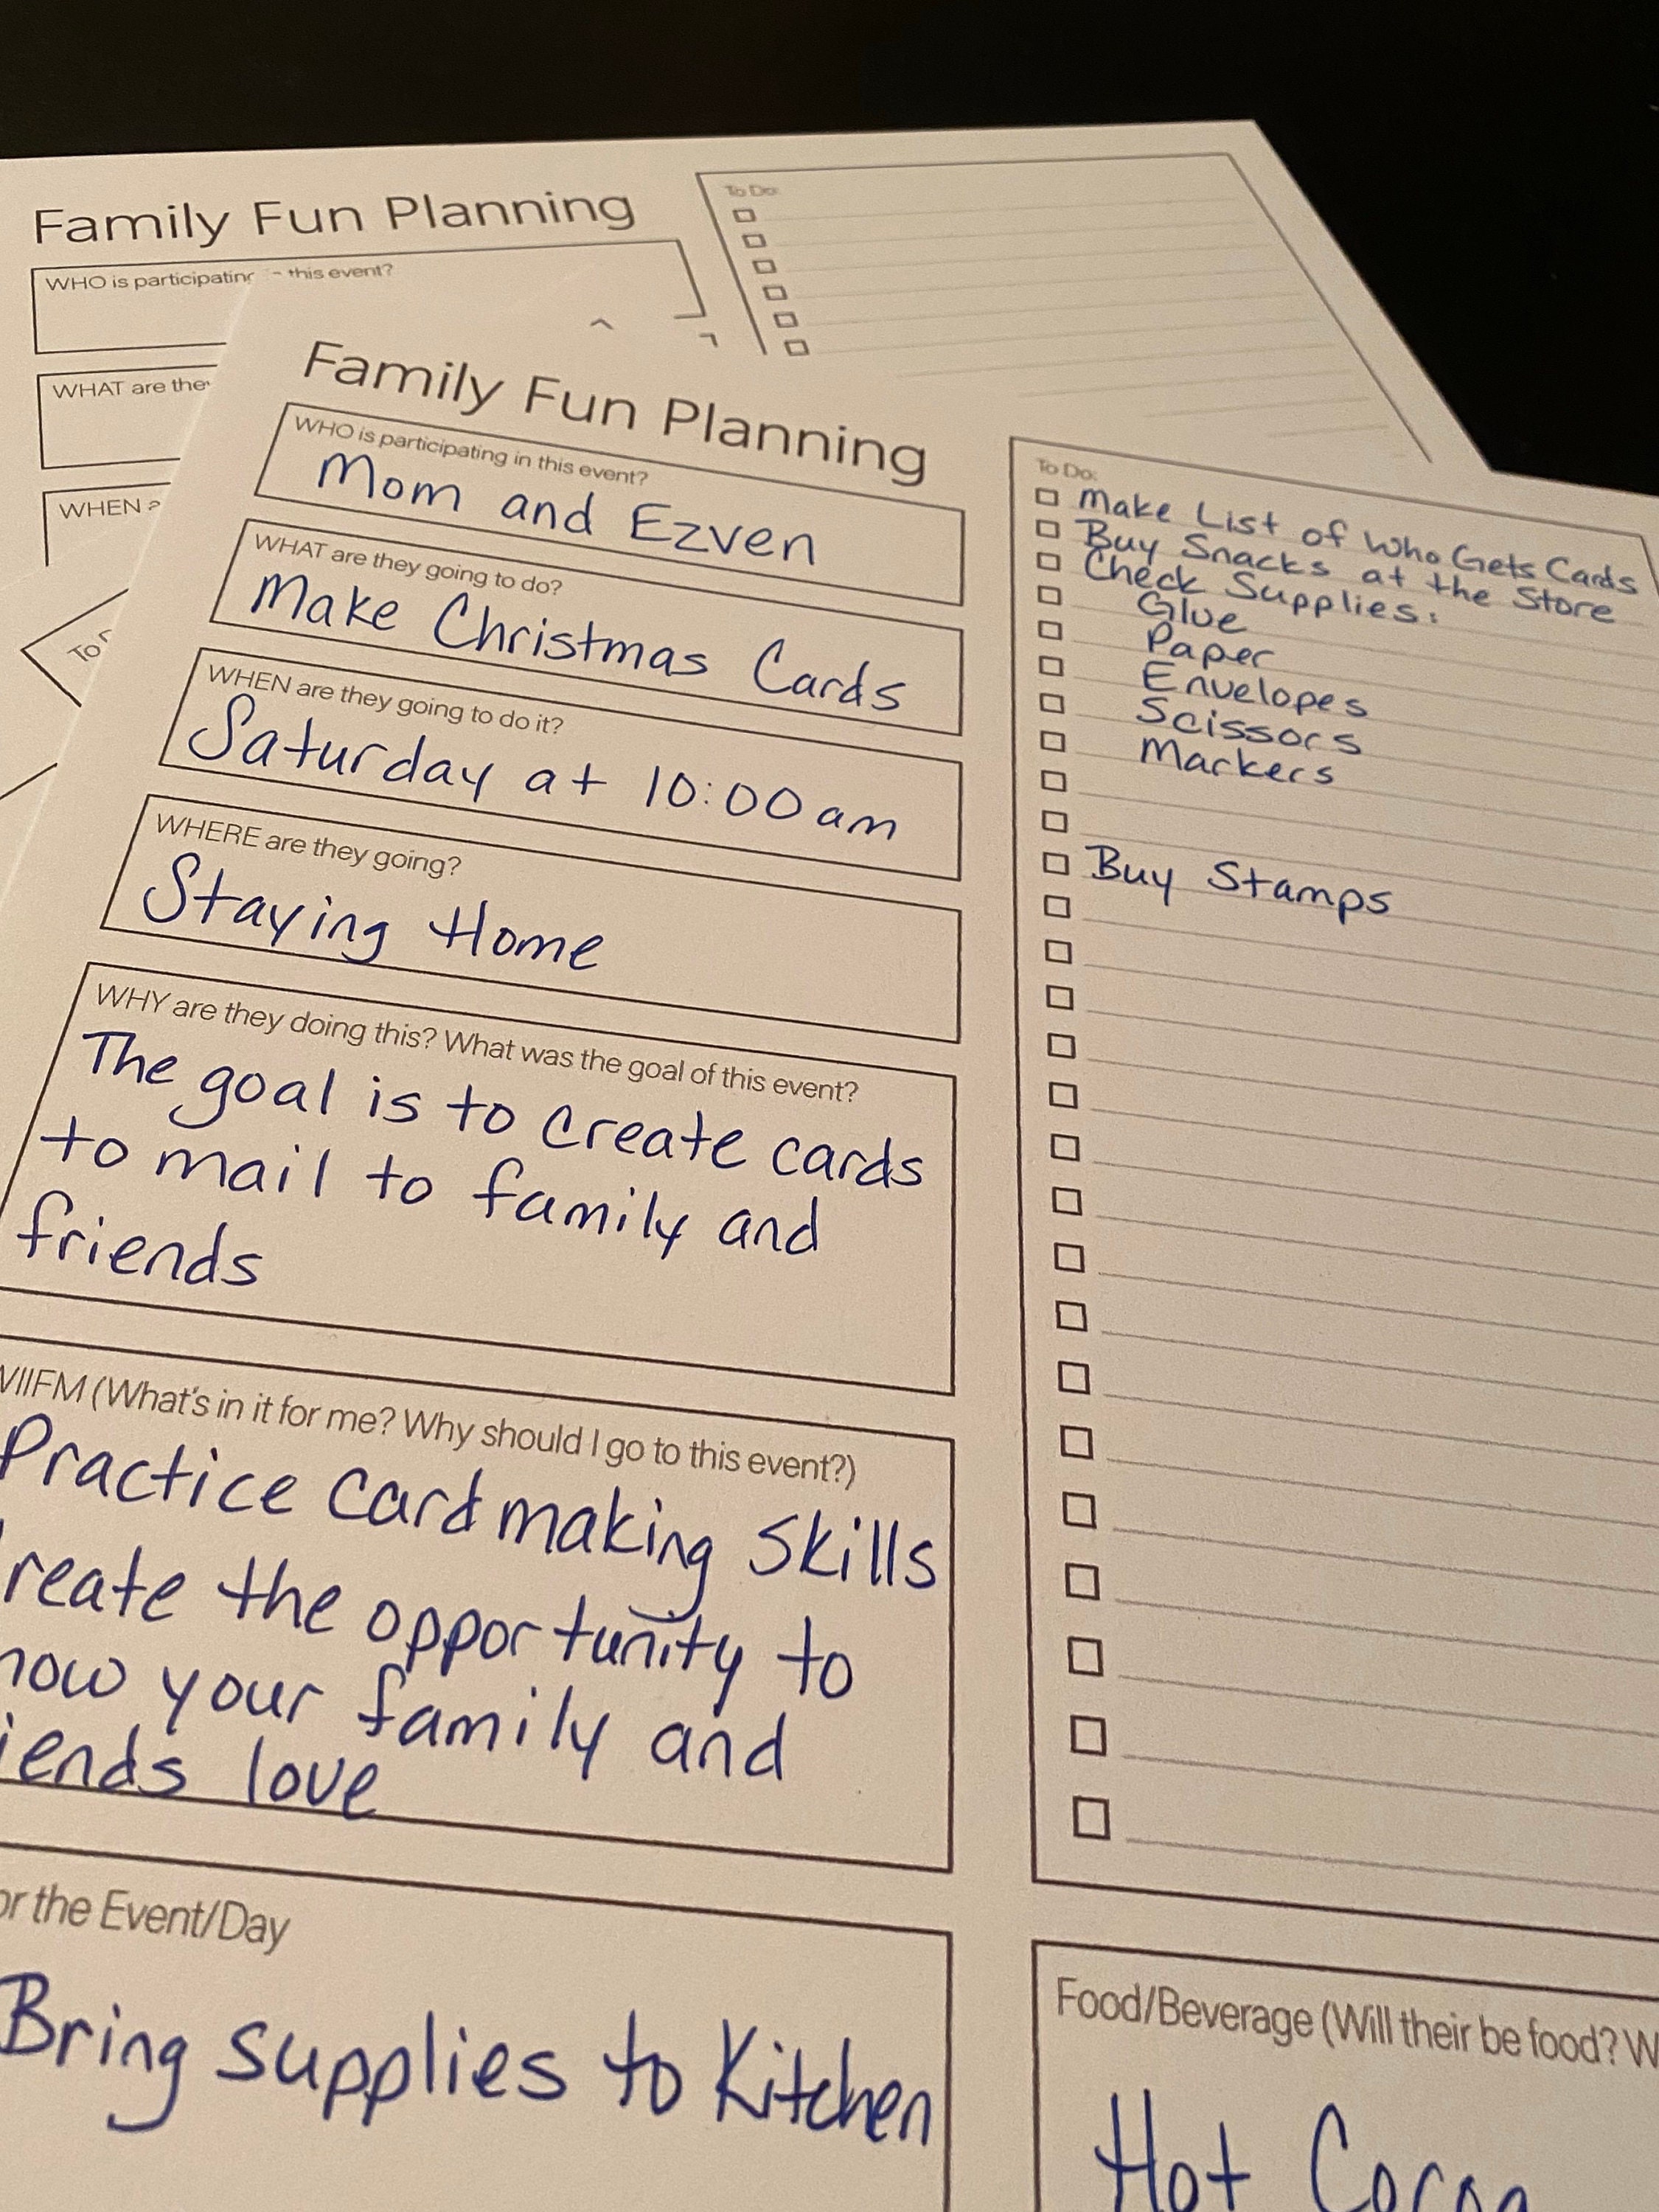 Family Fun Planning
WHO is participating this event?
WHAT are
WHEN
To Do:
Family Fun Planning
WHO is participating in this event?
Mom and Ezven
WHAT are they going to do?
Make Christmas Cards
WHEN are they going to do it?
Saturday at 10:00 am
WHERE are they going?
Staying Home
WHY are they doing this? What was the goal of this event?
The goal is to create cards
to mail to family and
friends
(What's in it for me? Why should I go to this event?)
Practice Card making Skills
the opportunity to
your family and
love
the Event/Day
Bring supplies to Kitchen
To Do:
Make List of Who Gets Cards
Buy Snacks at the Store
Check Supplies:
Glue
Paper
Envelopes
Scissors
Markers
Buy Stamps
Food/Beverage (Will their be food?
Hot Cocoa